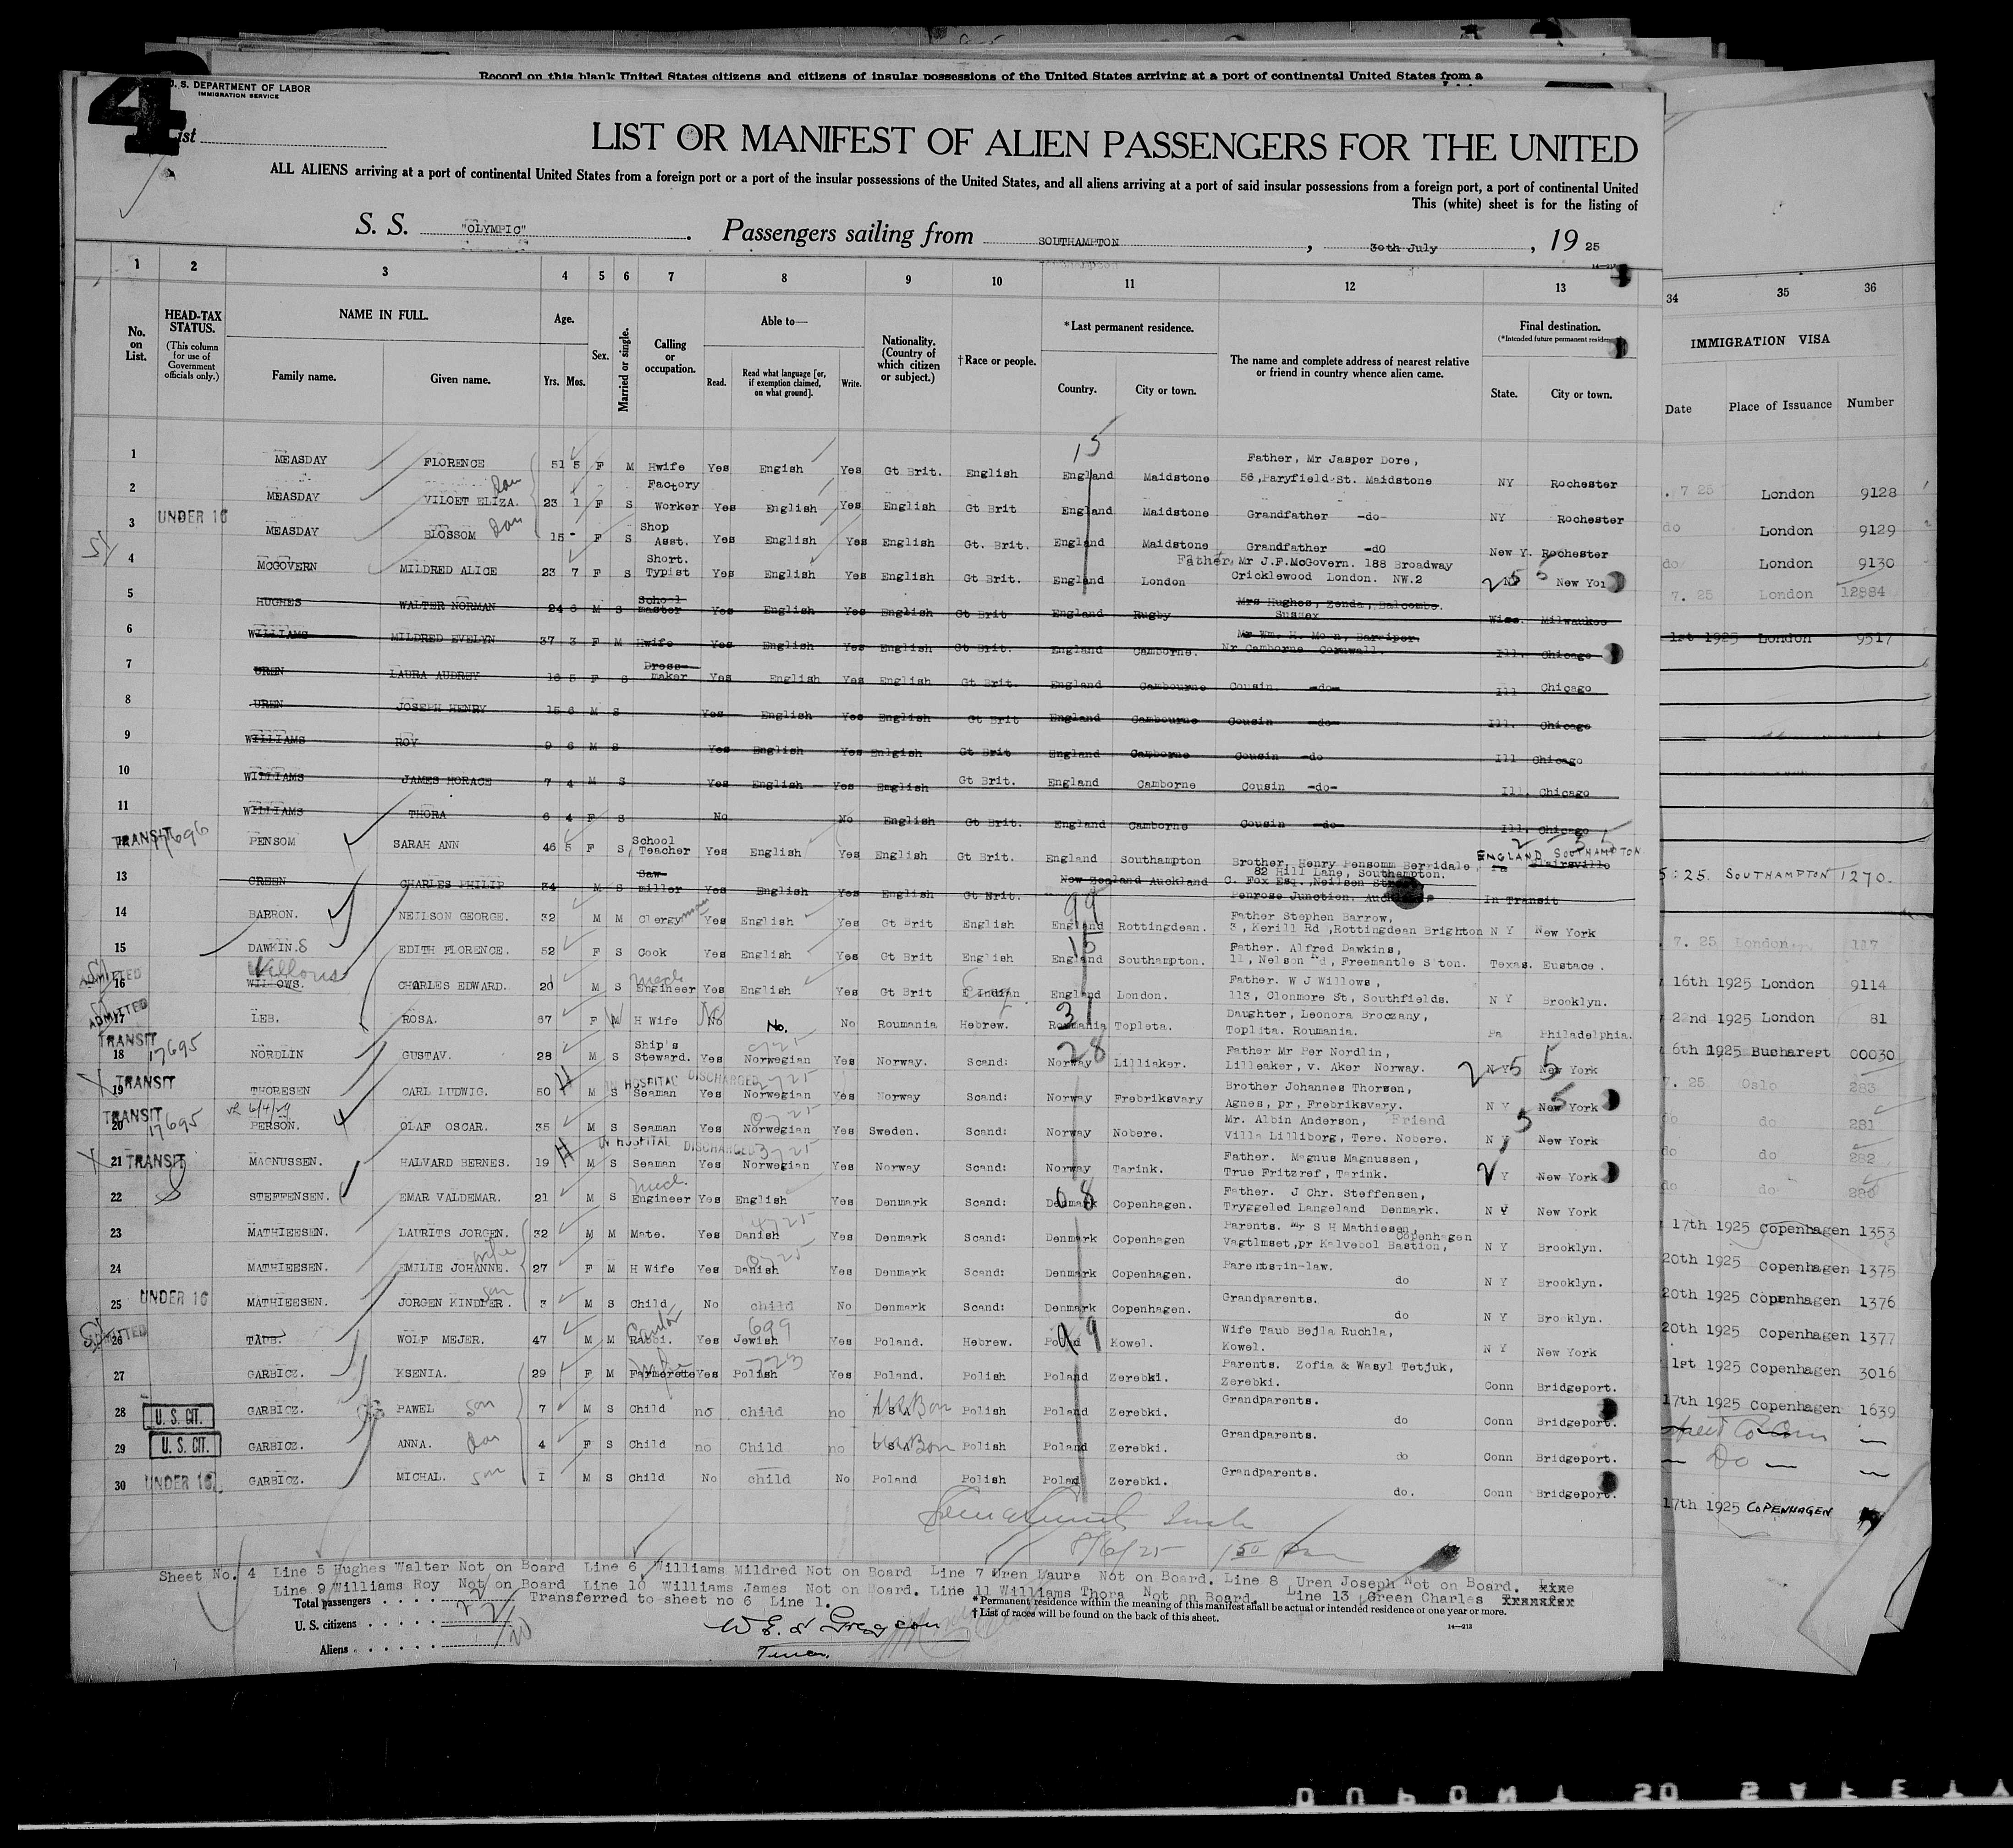 Record on this blank United States citizens and citizens of insular possessions of the United States arriving at a port of continental United States from a
4
U. S. DEPARTMENT OF LABOR
IMMIGRATION SERVICE
List
LIST OR MANIFEST OF ALIEN PASSENGERS FOR THE UNITED
ALL ALIENS arriving at a port of continental United States from a foreign port or a port of the insular possessions of the United States, and all aliens arriving at a port of said insular possessions from a foreign port, a port of continental United
This (white) sheet is for the listing of
S. S. "OLYMPIC" . Passengers sailing from SOUTHAMPTON , 30th July , 19 25
1 2 3 4 5 6 7 8 9 10 11 12 13 34 35 36
No. on List. HEAD-TAX STATUS. (This column for use of Government officials only.) NAME IN FULL. Family name. Given name. Age. Yrs. Mos. Sex. Married or single. Calling or occupation. Able to— Read. Read what language [or, if exemption claimed, on what ground]. Write. Nationality. (Country of which citizen or subject.) †Race or people. *Last permanent residence. Country. City or town. The name and complete address of nearest relative or friend in country whence alien came. Final destination. (*Intended future permanent residence) State. City or town. IMMIGRATION VISA Date Place of Issuance Number
15
1 MEASDAY FLORENCE 51 5 F M Hwife Yes Engish Yes Gt Brit. English England Maidstone Father, Mr Jasper Dore, 56, Maryfield St. Maidstone NY Rochester 7 25 London 9128
2 MEASDAY VILOET ELIZA. 23 1 F S Factory Worker Yes English Yes English Gt Brit England Maidstone Grandfather -do- NY Rochester do London 9129
3 UNDER 16 MEASDAY BLOSSOM 15 - F S Shop Asst. Yes English Yes English Gt. Brit. England Maidstone Grandfather -dO New Y. Rochester do London 9130
4 MCGOVERN MILDRED ALICE 23 7 F S Short. Typist Yes English Yes English Gt Brit. England London Father, Mr J.F.McGovern. 188 Broadway Cricklewood London. NW.2 New Yor 7. 25 London 12884
5 HUGHES WALTER NORMAN 24 6 M S School master Yes English Yes English Gt Brit England Rugby Mrs Hughes, Zenda, Balcombe. Sussex Wisc. Milwaukee 1st 1925 London 9517
6 WILLIAMS MILDRED EVELYN 37 3 F M Hwife Yes English Yes English Gt Brit. England Camborne. Nr Camborne Cornwall. Ill. Chicago
7 UREN LAURA AUDREY 16 5 F S Dress- maker Yes English Yes English Gt Brit. England Cambourne Cousin -do- Ill Chicago
8 UREN JOSEPH HENRY 15 6 M S Yes English Yes English Gt Brit England Cambourne Cousin -do- Ill. Chicago
9 WILLIAMS ROY 9 6 M S Yes English Yes Enlgish Gt Brit England Camborne Cousin -do Ill Chicago
10 WILLIAMS JAMES HORACE 7 4 M S Yes English Yes English Gt Brit. England Camborne Cousin -do- Ill. Chicago
11 WILLIAMS THORA 6 4 F S No No English Gt Brit. England Camborne Cousin -do- Ill. Chicago
TRANSIT 17696 PENSOM SARAH ANN 46 5 F S School Teacher Yes English Yes English Gt Brit. England Southampton Brother, Henry Pensomm Berridale 82 Hill Lane, Southampton. Pa Blairsville ENGLAND SOUTHAMPTON 5:25. SOUTHAMPTON 1270.
13 GREEN CHARLES PHILIP 34 M S Saw- miller Yes English Yes English Gt Brit. New Zealand Auckland C. Fox Esq. Neilson Street Penrose Junction. In Transit
14 BARRON. NEILSON GEORGE. 32 M M Clergyman Yes English Yes Gt Brit English 99 England Rottingdean. Father Stephen Barrow, 3, Kerill Rd ,Rottingdean Brighton N Y New York 7. 25 London
15 DAWKIN.S EDITH FLORENCE. 52 F S Cook Yes English Yes Gt Brit English 15 England Southampton. Father. Alfred Dawkins, 11, Nelson Rd, Freemantle S'ton. Texas. Eustace.
ADMITTED 16 Willows WILLOWS. CHARLES EDWARD. 20 M S Mech Engineer Yes English Yes Gt Brit England London. Father. W J Willows, 113, Clonmore St, Southfields. N Y Brooklyn. 16th 1925 London 9114
ADMITTED 17 LEB. ROSA. 67 F M H Wife No No. No Roumania Hebrew. 31 Roumania Topleta. Daughter, Leonora Broczany, Toplita. Roumania. Pa Philadelphia. 22nd 1925 London 81
TRANSIT 18 17695 NORDLIN GUSTAV. 28 M S Ship's Steward. Yes Norwegian Yes Norway. Scand: 28 Norway Lilliaker. Father Mr Per Nordlin, Lilleaker, v. Aker Norway. N Y New York 6th 1925 Bucharest 00030
TRANSIT 19 THORESEN CARL LUDWIG. 50 M S IN HOSPITAL DISCHARGED Seaman Yes Norwegian Yes Norway Scand: Norway Frebriksvary Brother Johannes Thorsen, Agnes, pr, Frebriksvary. N Y New York 7. 25 Oslo 283
TRANSIT 20 17695 PERSON. OLAF OSCAR. 35 M S Seaman Yes Norwegian Yes Sweden. Scand: Norway Nobere. Mr. Albin Anderson, Friend Villa Lilliborg, Tere. Nobere. N Y New York do do 281
TRANSIT 21 MAGNUSSEN. HALVARD BERNES. 19 M S IN HOSPITAL DISCHARGED Seaman Yes Norwegian Yes Norway Scand: Norway Tarink. Father. Magnus Magnussen, True Fritzref, Tarink. Y New York do do 282
22 STEFFENSEN. EMAR VALDEMAR. 21 M S Mech. Engineer Yes English Yes Denmark Scand: 08 Denmark Copenhagen. Father. J Chr. Steffensen, Tryggeled Langeland Denmark. N Y New York do do 280
23 MATHIEESEN. LAURITS JORGEN. 32 M M Mate. Yes Danish Yes Denmark Scand: Denmark Copenhagen Parents. Mr S H Mathiesen, Vagtlmset,pr Kalvebol Bastion, Copenhagen N Y Brooklyn. 17th 1925 Copenhagen 1353
24 MATHIEESEN. EMILIE JOHANNE. wife 27 F M H Wife Yes Danish Yes Denmark Scand: Denmark Copenhagen. Parents-in-law. do N Y Brooklyn. 20th 1925 Copenhagen 1375
25 UNDER 16 MATHIEESEN. JORGEN KINDHER. son 3 M S Child No child No Denmark Scand: Denmark Copenhagen. Grandparents. do N Y Brooklyn. 20th 1925 Copenhagen 1376
ADMITTED 26 TAUB. WOLF MEJER. 47 M M Cantor Rabbi. Yes Jewish 699 Yes Poland. Hebrew. Poland Kowel. Wife Taub Bejla Ruchla, Kowel. N Y New York 20th 1925 Copenhagen 1377
27 GARBICZ. KSENIA. 29 F M wife Farmerette Yes Polish Yes Poland. Polish Poland Zerebki. Parents. Zofia & Wasyl Tetjuk, Zerebki. Conn Bridgeport. 1st 1925 Copenhagen 3016
28 U. S. CIT. GARBICZ. PAWEL son 7 M S Child no child no USA Born Polish Poland Zerebki. Grandparents. do Conn Bridgeport. 17th 1925 Copenhagen 1639
29 U. S. CIT. GARBICZ. ANNA. dau 4 F S Child no Child no USA Born Polish Poland Zerebki. Grandparents. do Conn Bridgeport. — Do —
30 UNDER 16 GARBICZ. MICHAL. son I M S Child No child No Poland Polish Poland Zerebki. Grandparents. do. Conn Bridgeport. 17th 1925 COPENHAGEN
8/6/25 1 50
Sheet No. 4 Line 5 Hughes Walter Not on Board Line 6 Williams Mildred Not on Board Line 7 Uren Laura Not on Board. Line 8 Uren Joseph Not on Board. Line
Line 9 Williams Roy Not on Board Line 10 Williams James Not on Board. Line 11 Williams Thora Not on Board. Line 13 Green Charles
Transferred to sheet no 6 Line 1.
Total passengers
U. S. citizens
Aliens
* Permanent residence within the meaning of this manifest shall be actual or intended residence of one year or more.
† List of races will be found on the back of this sheet.
14—213